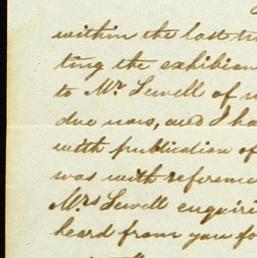 within the last
ting the exhibition
to Mr Sewell of
due now, and I ha
with publication of
was with reference
Mrs Sewell enquiri
heard from you fo